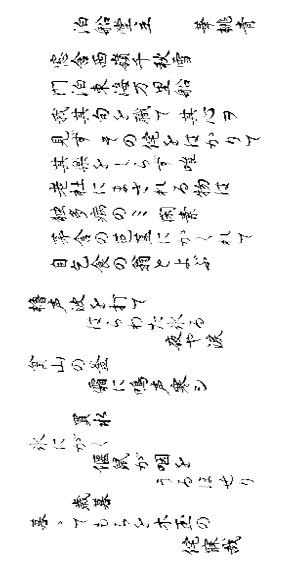 泊船堂主　華桃青
窓含西嶺千秋雪
門泊東海万里船
我其句を識て其心ヲ
見ずその侘をはかりて
其楽をしらず唯
老杜にまされる物は
独多病のミ閑素
茅舎の芭蕉にかくれて
自乞食の翁とよぶ
櫓声波を打て
はらわた氷る
夜や涙
貧山の釜
霜に鳴声寒シ
買水
氷にがく
偃鼠が咽を
うるほせり
歳暮
暮ゝてもちを木玉の
侘寝哉